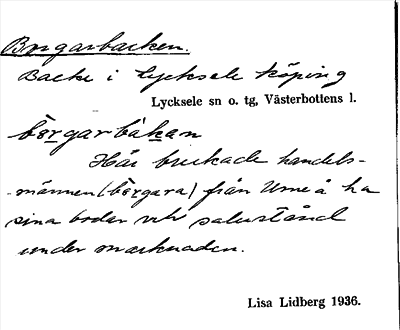 Borgarbacken.
Backe i Lycksele köping
Lycksele sn o. tg, Västerbottens l.
bòrgarbàkan
Här brukade handels-
männen (bòrgara) från Umeå ha
sina bodar och saluslånd
under marknaden.
Lisa Lidberg 1936.